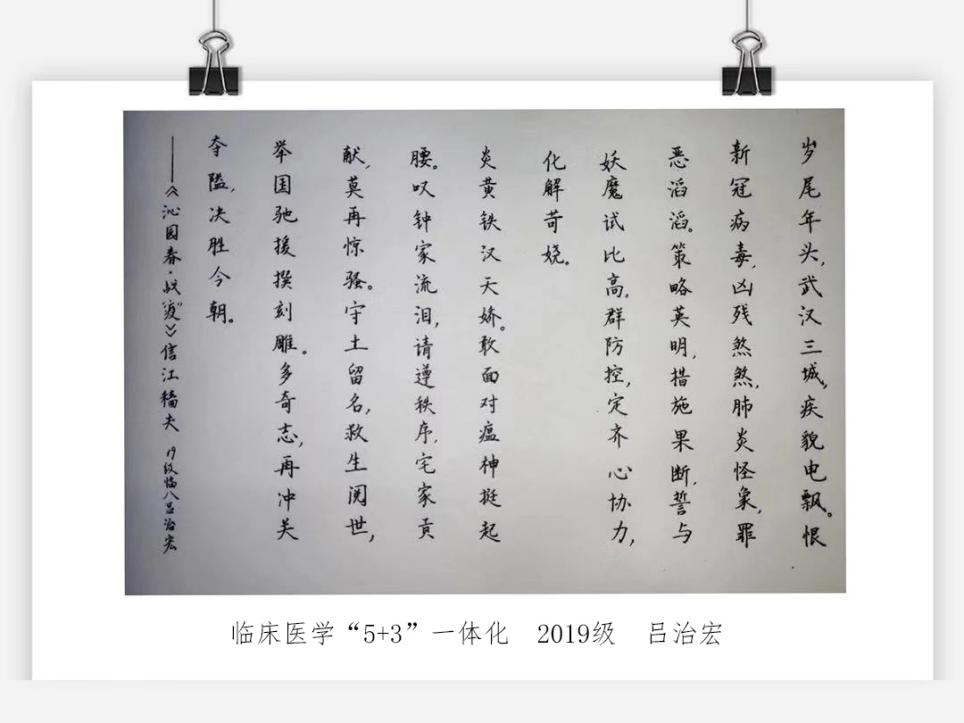 岁尾年头,武汉三城,疾貌电飘。恨
新冠病毒,凶残煞煞,肺炎怪象,罪
恶滔滔。策略英明,措施果断,誓与
妖魔试比高。群防控,定齐心协力,
化解苛娆。
炎黄铁汉天娇。敢面对瘟神挺起
腰。叹钟家流泪,请遵秩序,宅家贡
献,莫再惊骚。守土留名,救生阅世,
举国驰援撰刻雕。多奇志,再冲关
夺隘,决胜今朝。
——《沁园春·战“疫”》信江穑夫 19级临八吕治宏
临床医学“5+3”一体化 2019级 吕治宏